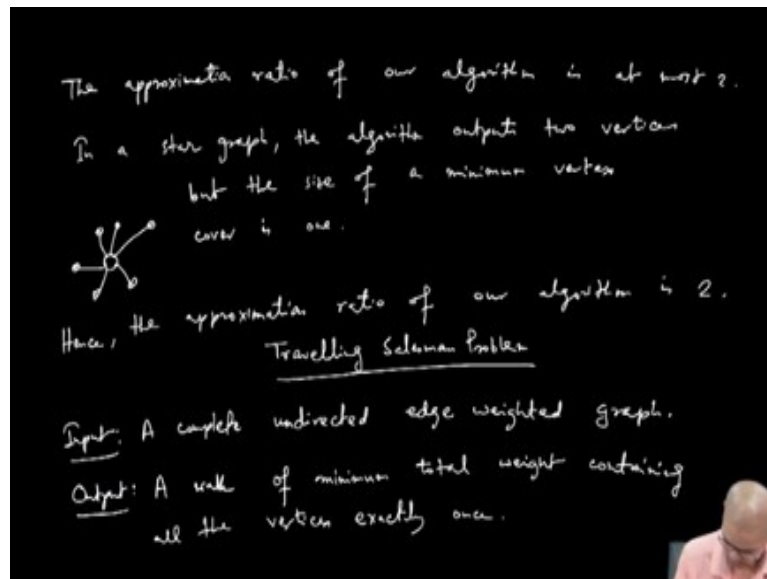 The approximation ratio of our algorithm is at most 2.
In a star graph, the algorithm outputs two vertices
but the size of a minimum vertex
cover is one.
Hence, the approximation ratio of our algorithm is 2.
Travelling Salesman Problem
Input: A complete undirected edge weighted graph.
Output: A walk of minimum total weight containing
all the vertices exactly once.